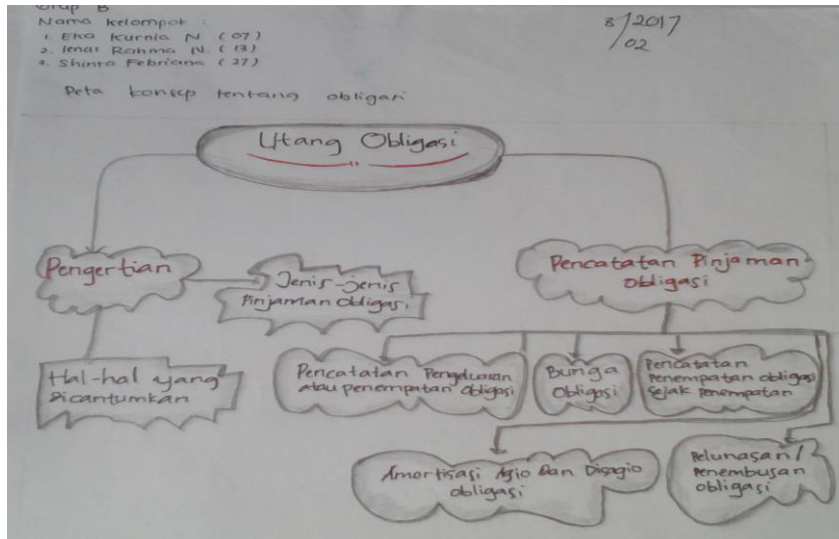 Grup B
Nama kelompok :
1. Eka Kurnia N (07)
2. Rahma N. (13)
3. Shinta Febriana (27)
8/2017
/02
Peta konsep tentang obligasi
Utang Obligasi
Pengertian
Jenis-jenis
Pinjaman Obligasi
Hal-hal yang
dicantumkan
Pencatatan Pinjaman
Obligasi
Pencatatan Pengeluaran
atau penempatan Obligasi
Bunga
Obligasi
Pencatatan
Penempatan obligasi
Sejak penempatan
Amortisasi Agio Dan Disagio
obligasi
Pelunasan/
Penembusan
obligasi